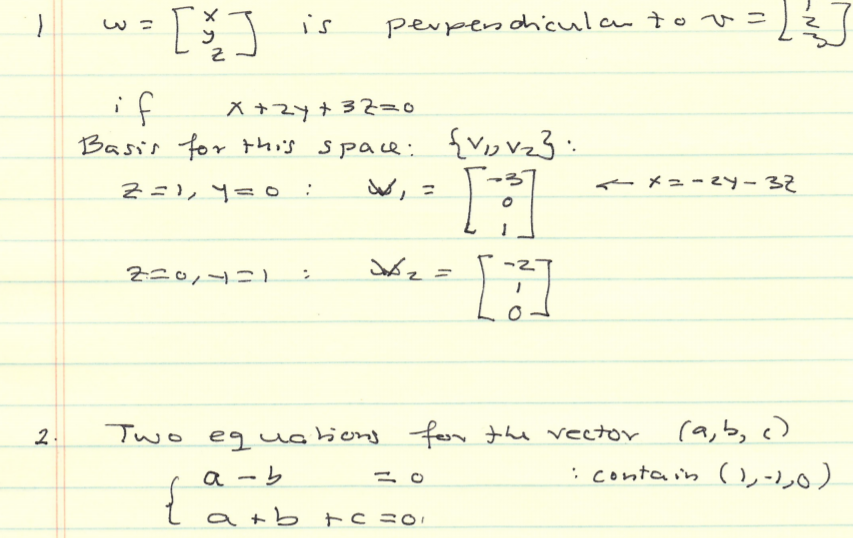 1 w = [x y z] is perpendicular to v = [1 2 3]
if x + 2y + 3z = 0
Basis for this space: {v1, v2}:
z = 1, y = 0 : w1 = [-3 0 1] ← x = -2y - 3z
z = 0, y = 1 : w2 = [-2 1 0]
2. Two equations for the vector (a, b, c)
{ a - b = 0 : contain (1, -1, 0)
a + b + c = 0